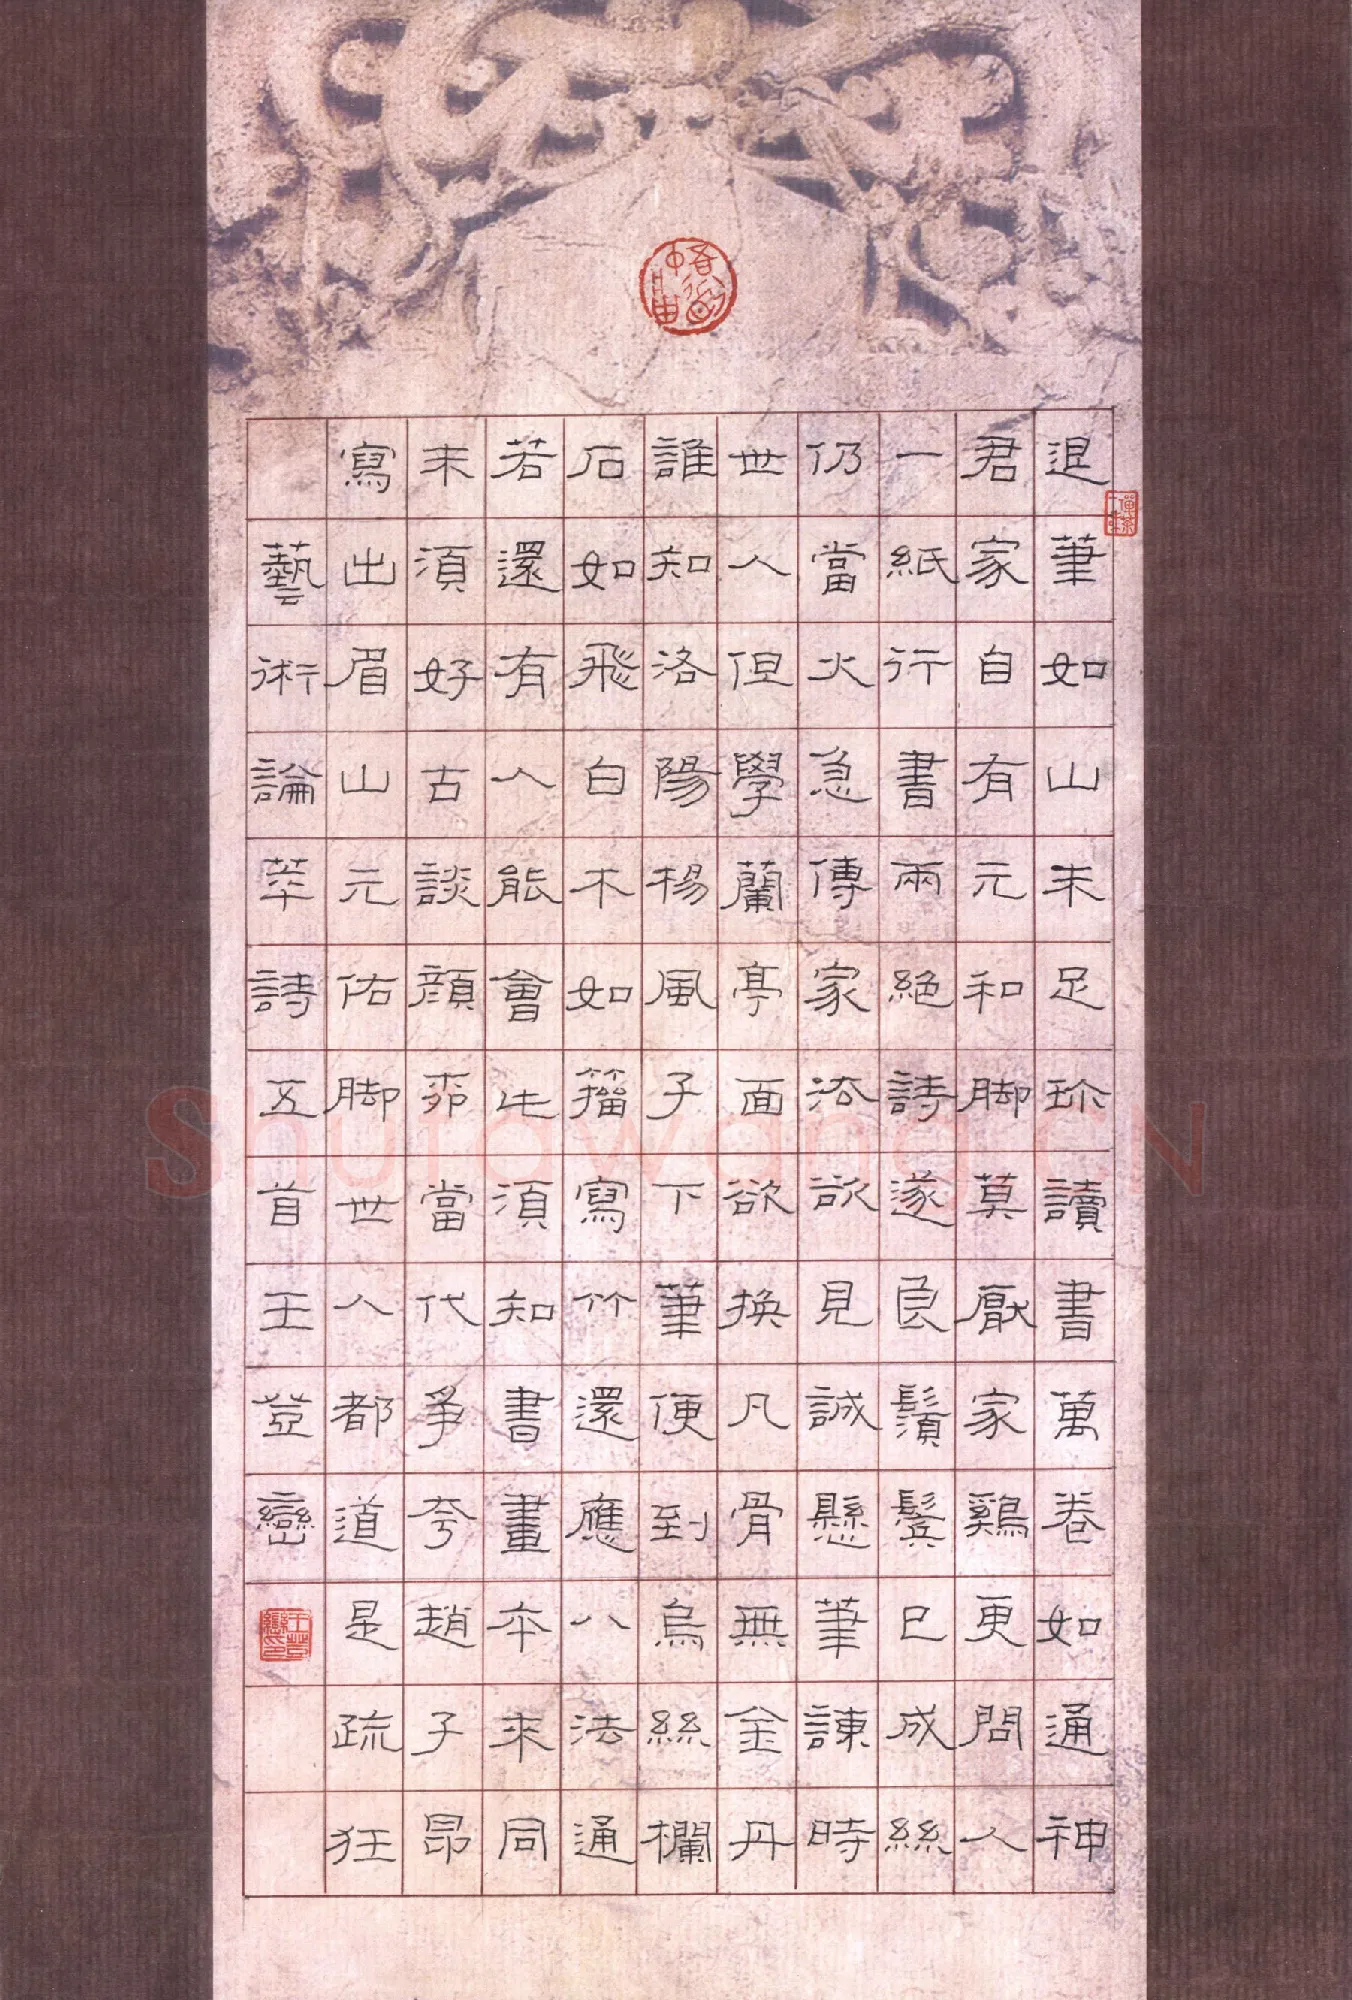 退筆如山未足珎讀書萬卷如通神
君家自有元和脚莫厭家鷄更問人
一紙行書兩絕詩遂良鬚鬢已成絲
仍當火急傳家法欲見誠懸筆諫時
世人但學蘭亭面欲換凡骨無金丹
誰知洛陽楊風子下筆便到烏絲欄
石如飛白木如籀寫竹還應八法通
若還有人能會此須知書畫本來同
未須好古談顏柳當代爭夸趙子昂
寫出眉山元佑脚世人都道是疏狂
藝術論萃詩五首王登巒
Shufawang.CN